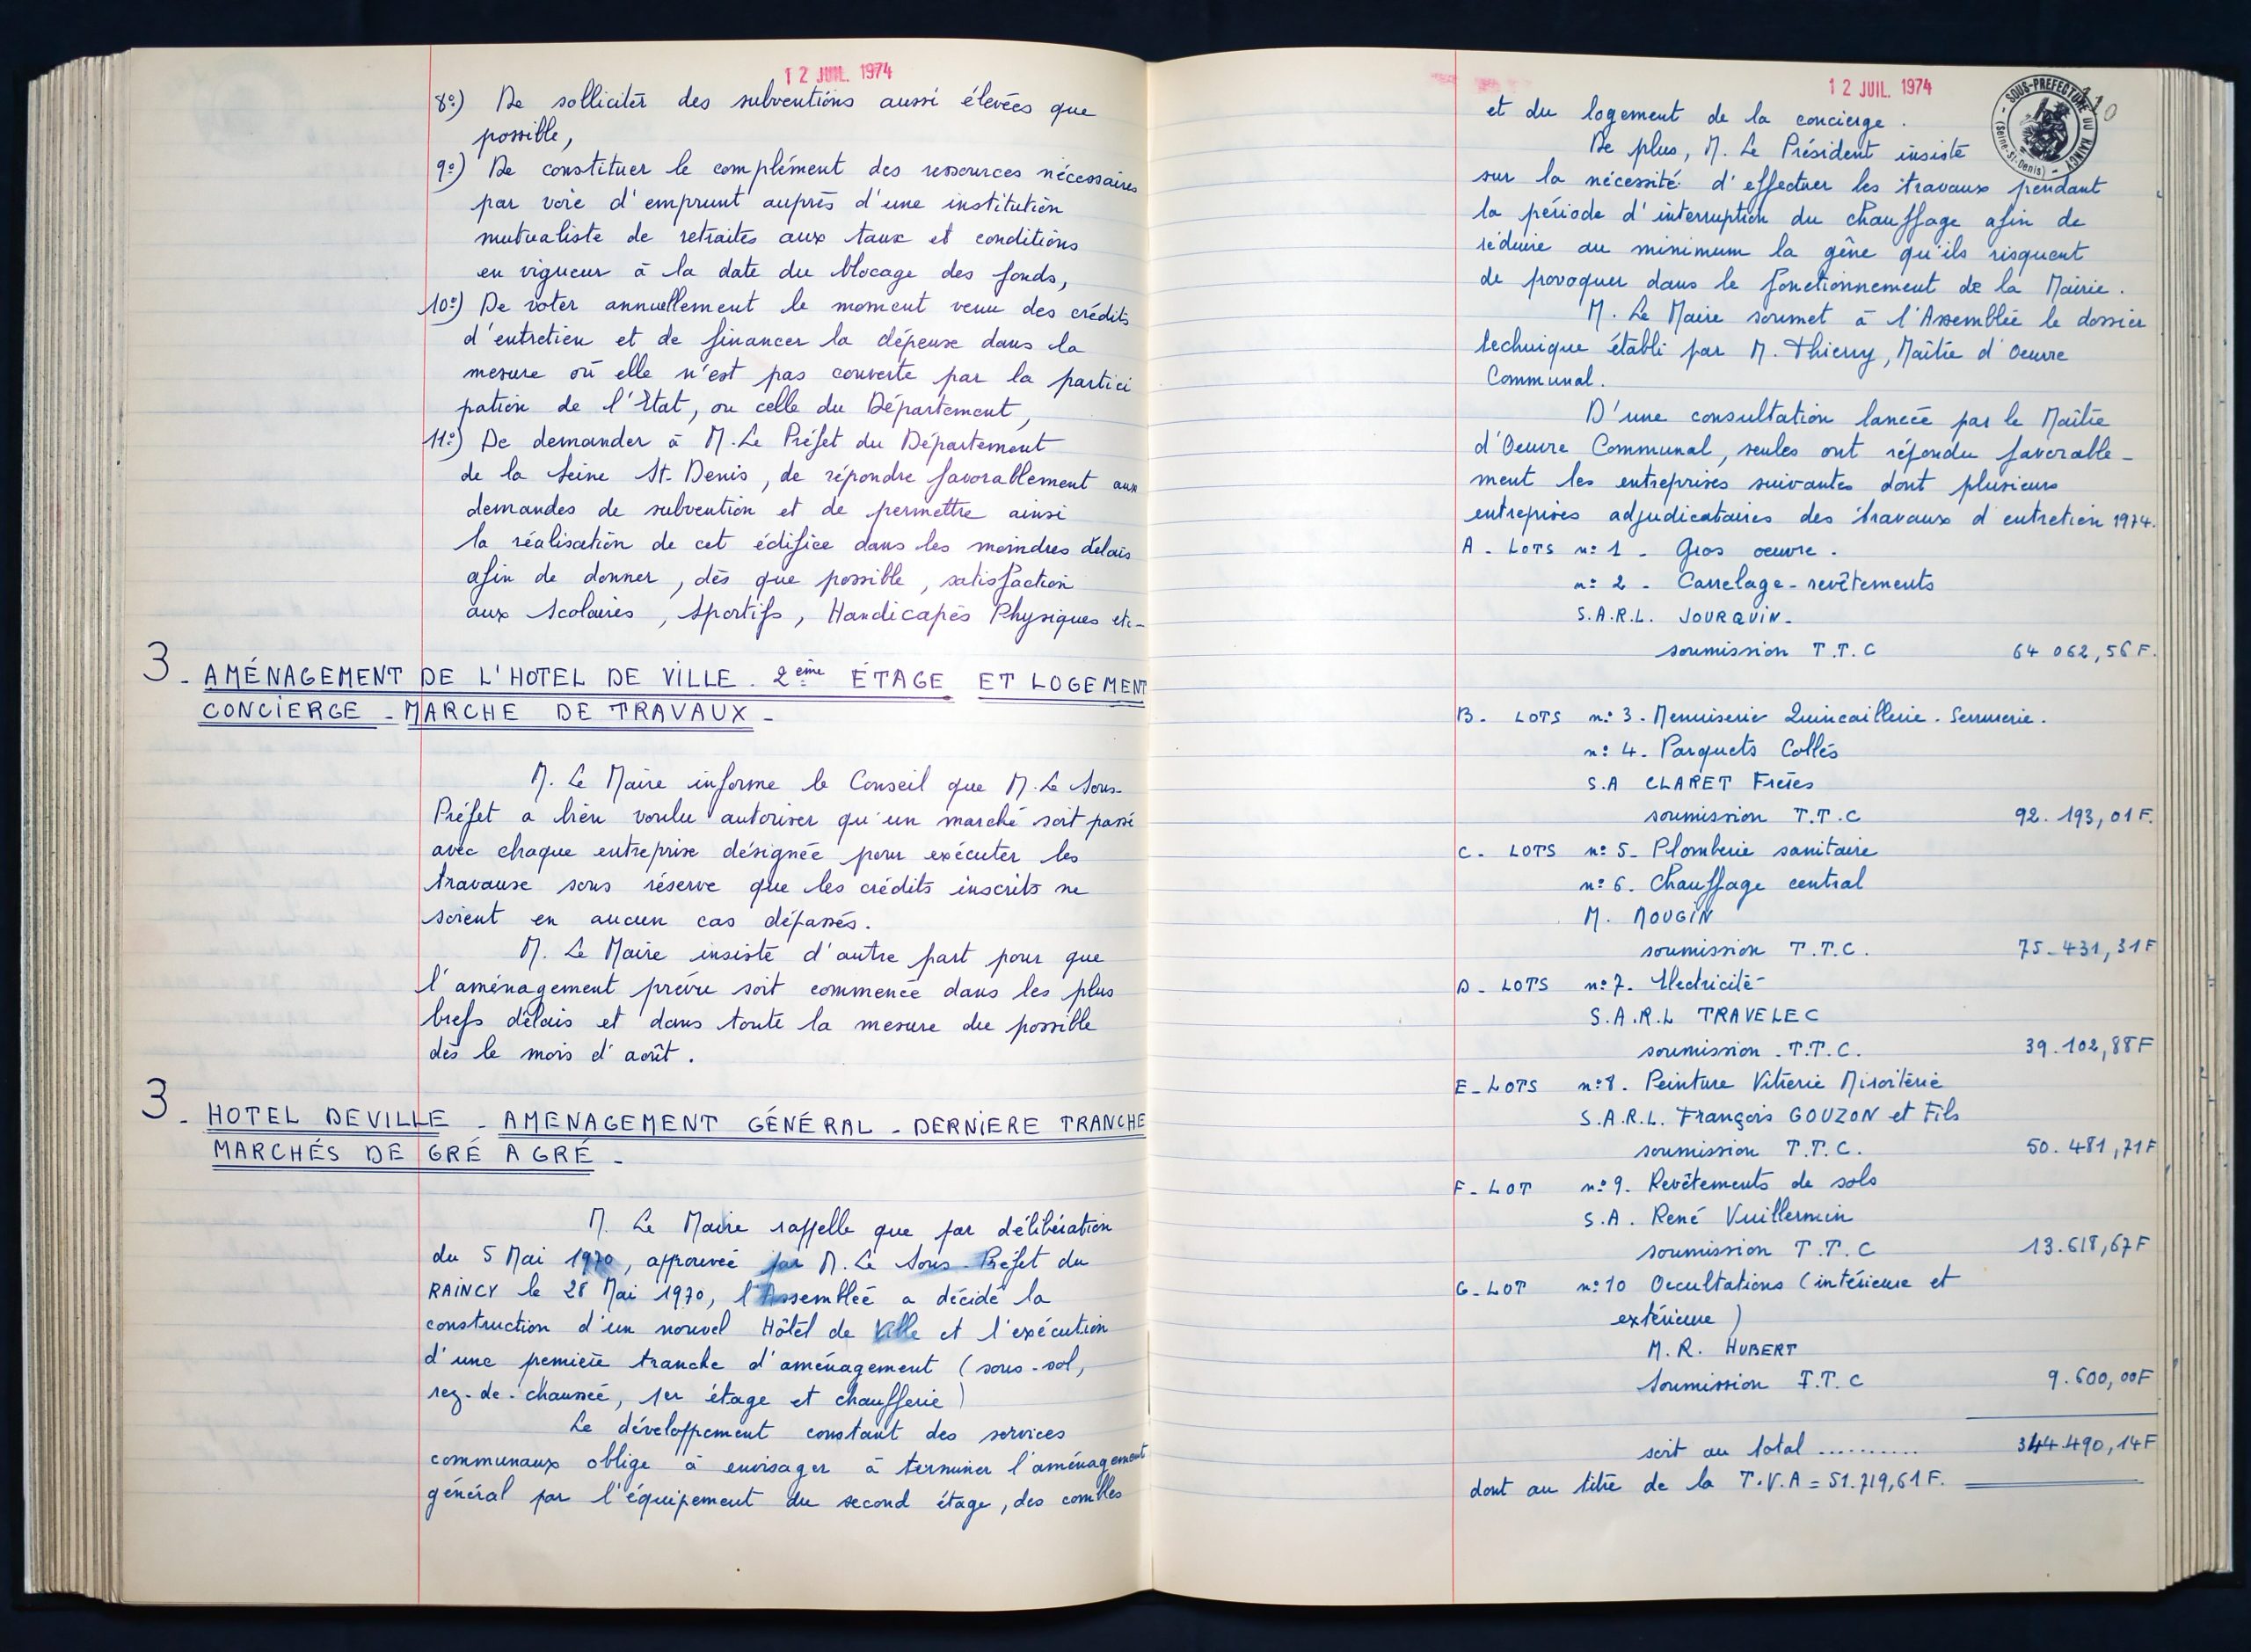 12 JUIL. 1974
8º) De solliciter des subventions aussi élevées que
possible,
9º) De constituer le complément des ressources nécessaires
par voie d'emprunt auprès d'une institution
mutualiste de retraites aux taux et conditions
en vigueur à la date du blocage des fonds,
10º) De voter annuellement le moment venu des crédits
d'entretien et de financer la dépense dans la
mesure où elle n'est pas couverte par la partici
pation de l'Etat, ou celle du Département,
11º) De demander à M. Le Préfet du Département
de la Seine St-Denis, de répondre favorablement aux
demandes de subvention et de permettre ainsi
la réalisation de cet édifice dans les moindres délais
afin de donner, dès que possible, satisfaction
aux Scolaires, Sportifs, Handicapés Physiques etc-
3 - AMÉNAGEMENT DE L'HOTEL DE VILLE. 2ème ÉTAGE ET LOGEMENT
CONCIERGE - MARCHE DE TRAVAUX -
M. Le Maire informe le Conseil que M. Le Sous-
Préfet a bien voulu autoriser qu'un marché soit passé
avec chaque entreprise désignée pour exécuter les
travaux sous réserve que les crédits inscrits ne
soient en aucun cas dépassés.
M. Le Maire insiste d'autre part pour que
l'aménagement prévu soit commencé dans les plus
brefs délais et dans toute la mesure du possible
dès le mois d'août.
3 - HOTEL DE VILLE - AMENAGEMENT GÉNÉRAL - DERNIERE TRANCHE
MARCHÉS DE GRÉ A GRÉ -
M. Le Maire rappelle que par délibération
du 5 Mai 1970, approuvée par M. Le Sous-Préfet du
RAINCY le 28 Mai 1970, l'Assemblée a décidé la
construction d'un nouvel Hôtel de Ville et l'exécution
d'une première tranche d'aménagement (sous-sol,
rez-de-chaussée, 1er étage et chaufferie)
Le développement constant des services
communaux oblige à envisager à terminer l'aménagement
général par l'équipement du second étage, des combles
12 JUIL. 1974
SOUS-PREFECTURE DU RAINCY
(Seine-St-Denis)
110
et du logement de la concierge.
De plus, M. Le Président insiste
sur la nécessité d'effectuer les travaux pendant
la période d'interruption du chauffage afin de
réduire au minimum la gêne qu'ils risquent
de provoquer dans le fonctionnement de la Mairie.
M. Le Maire soumet à l'Assemblée le dossier
technique établi par M. Thierry, Maître d'Oeuvre
Communal.
D'une consultation lancée par le Maître
d'Oeuvre Communal, seules ont répondu favorable-
ment les entreprises suivantes dont plusieurs
entreprises adjudicataires des travaux d'entretien 1974.
A - LOTS nº 1 - Gros oeuvre.
nº 2 - Carrelage - revêtements
S.A.R.L. JOURQUIN -
soumission T.T.C 64 062,56 F.
B - LOTS nº 3. Menuiserie Quincaillerie. Serrurerie.
nº 4. Parquets Collés
S.A CLARET Frères
soumission T.T.C 92.193,01 F.
C - LOTS nº 5 - Plomberie sanitaire
nº 6. Chauffage central
M. MOUGIN
soumission T.T.C. 75-431,31 F
D - LOTS nº 7. Electricité -
S.A.R.L TRAVELEC
soumission T.T.C. 39.102,88 F
E - LOTS nº 8. Peinture Vitrerie Miroiterie
S.A.R.L. François GOUZON et Fils
soumission T.T.C. 50.481,71 F
F - LOT nº 9. Revêtements de sols
S.A. René Vuillermin
soumission T.T.C 13.618,67 F
G - LOT nº 10 Occultations (intérieure et
extérieure)
M. R. HUBERT
Soumission T.T.C 9.600,00 F
soit au total .......... 344.490,14 F
dont au titre de la T.V.A = 51.719,61 F.